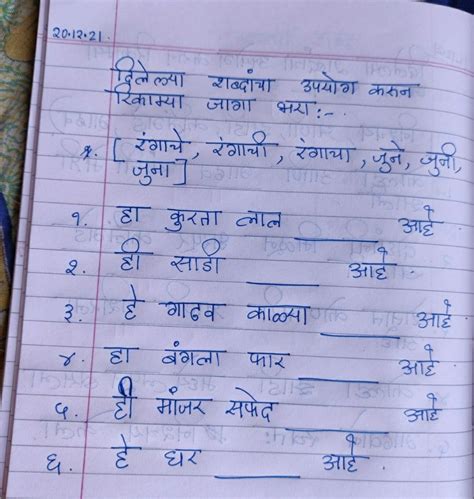 20.12.21.
दिलेल्या शब्दांचा उपयोग करून
रिकाम्या जागा भरा:-
१. [रंगाचे, रंगाची, रंगाचा, जुने, जुनी,
जुना]
१. हा कुरता लाल ______ आहे
२. ही साडी ______ आहे.
३. हे गाढव काळ्या ______ आहे.
४. हा बंगला फार ______ आहे
५. ही मांजर सफेद ______ आहे
६. हे घर ______ आहे.